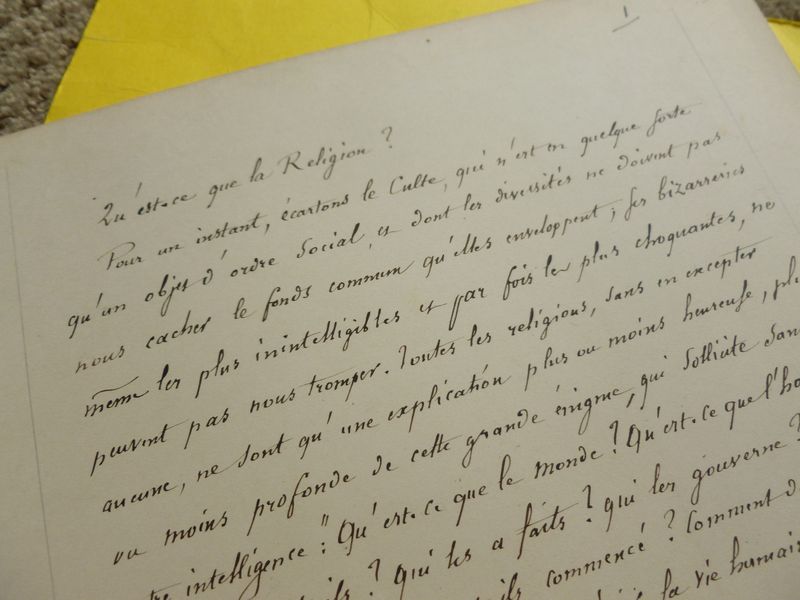 1
Qu'est-ce que la Religion ?
Pour un instant, écartons le Culte, qui n'est en quelque sorte
qu'un objet d'ordre Social, et dont les diversités ne doivent pas
nous cacher le fonds commun qu'elles enveloppent ; ses bizarreries
même les plus inintelligibles et par fois les plus choquantes, ne
peuvent pas nous tromper. Toutes les religions, sans en excepter
aucune, ne sont qu'une explication plus ou moins heureuse, plu
ou moins profonde de cette grande énigme, qui sollicite san
tre intelligence : " Qu'est-ce que le monde ? Qu'est-ce que l'ho
ils ? Qui les a faits ? Qui les gouverne ?
ils commencé ? Comment
la vie humai